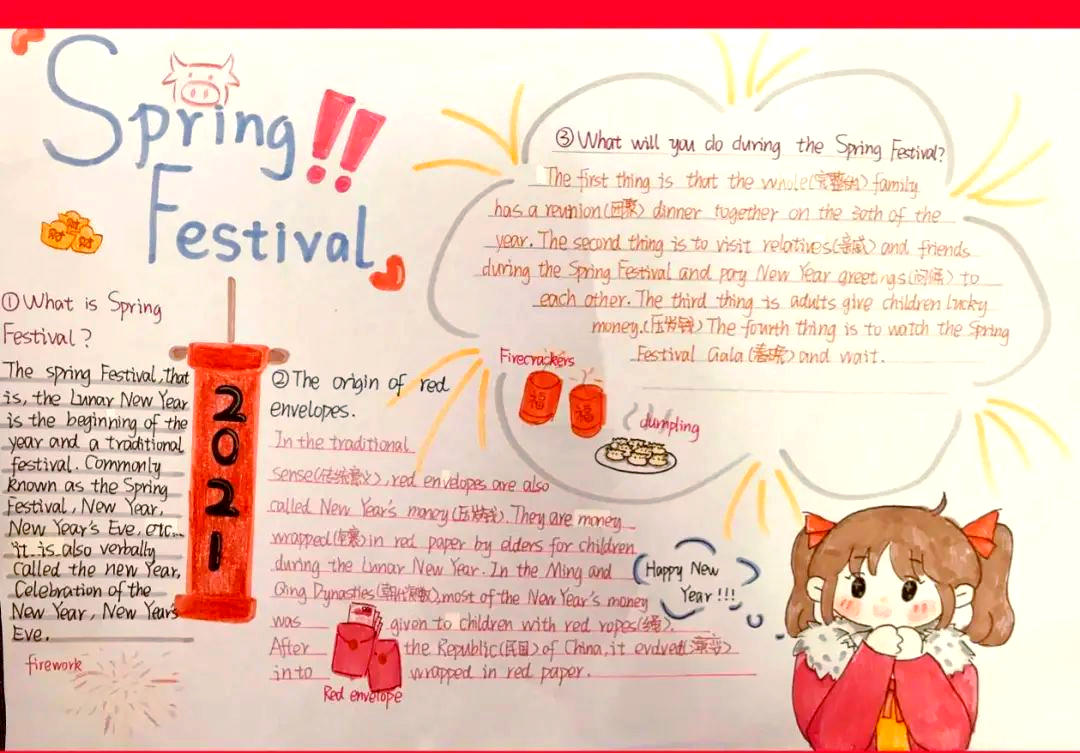 Spring
Festival
!!
财
财
财
①What is Spring
Festival?
The spring Festival, that
is, the Lunar New Year
is the beginning of the
year and a traditional
festival. Commonly
known as the Spring
Festival, New Year,
New Year's Eve, etc...
it is also verbally
called the new Year,
Celebration of the
New Year, New Year's
Eve.
firework
2021
②The origin of red
envelopes.
In the traditional
sense(传统意义), red envelopes are also
called New Year's money(压岁钱). They are money
wrapped(包裹)in red paper by elders for children
during the Lunar New Year. In the Ming and
Qing Dynasties(朝代), most of the New Year's money
was given to children with red ropes(绳).
After the Republic(民国) of China, it evolved(演变)
into wrapped in red paper.
Red envelope
③What will you do during the Spring Festival?
The first thing is that the whole(完整的) family
has a reunion(团聚) dinner together on the 30th of the
year. The second thing is to visit relatives(亲戚) and friends
during the Spring Festival and pary New Year greetings(问候) to
each other. The third thing is adults give children lucky
money.(压岁钱) The fourth thing is to watch the Spring
Festival Gala(春晚) and wait.
Firecrackers
福
福
dumpling
Happy New
Year !!!